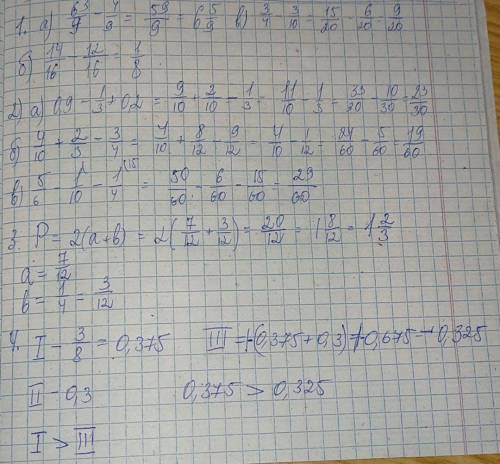 1. а) 63/9 - 4/9 = 59/9 = 6 5/9 в) 3/4 - 3/10 = 15/20 - 6/20 = 9/20
б) 14/16 - 12/16 = 1/8
2) а) 0,9 - 1/3 + 0,2 = 9/10 + 2/10 - 1/3 = 11/10 - 1/3 = 33/30 - 10/30 = 23/30
б) 4/10 + 2/3 - 3/4 = 4/10 + 8/12 - 9/12 = 4/10 - 1/12 = 24/60 - 5/60 = 19/60
в) 5/6 - 1/10 - 1/4 = 50/60 - 6/60 - 15/60 = 29/60
3. P = 2(a+b) = 2(7/12 + 3/12) = 20/12 = 1 8/12 = 1 2/3
a = 7/12
b = 1/4 = 3/12
4. I - 3/8 = 0,375 III = 1-(0,375+0,3)=1-0,675=0,325
II - 0,3 0,375 > 0,325
I > III